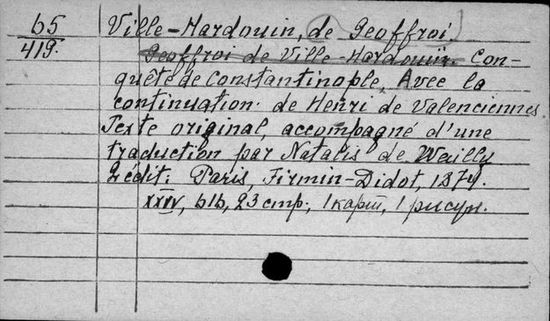 65
419.
Ville-Hardouin, de Geoffroi.
Geoffroi de Ville-Hardouin. Con-
quête de Constantinople, Avec la
continuation de Henri de Valenciennes
Texte original, accompagné d'une
traduction par Natalis de Wailly
2 édit. Paris, Firmin-Didot, 1874.
XXIV, 616, 23 стр., 1 карт, 1 рисун.